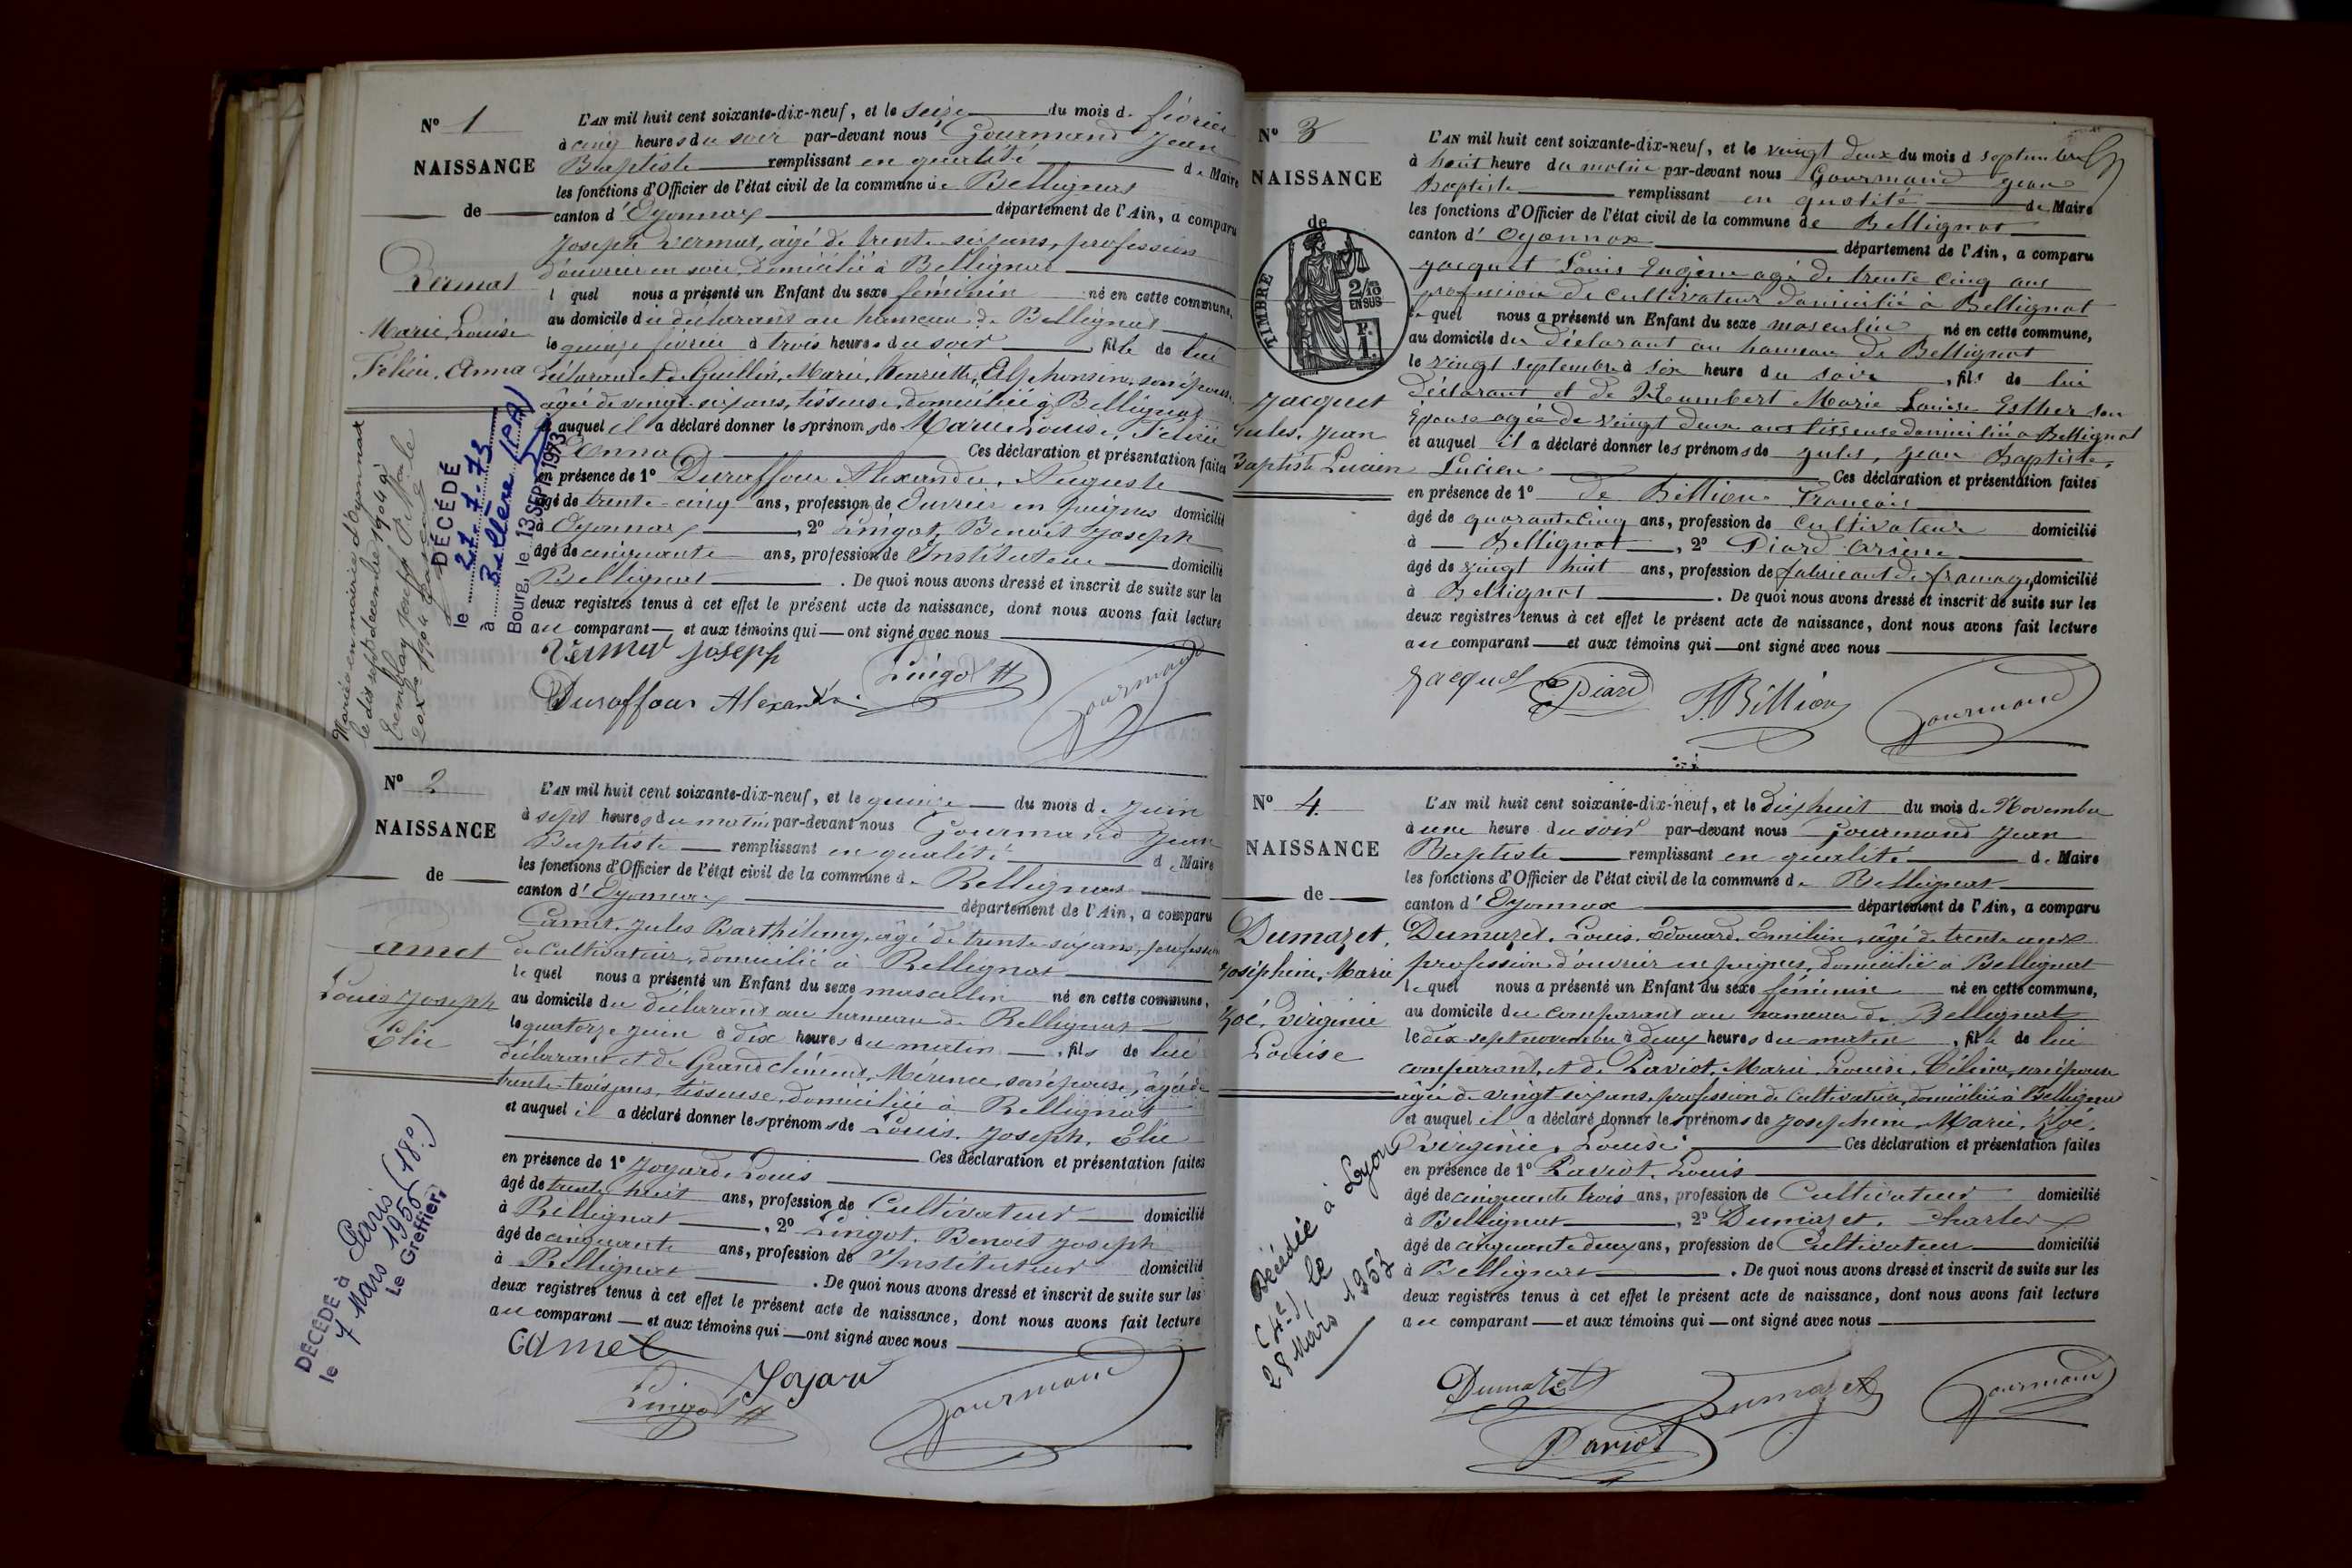 N° 1
NAISSANCE
de
Vermat
Marie, Louise
Félicie, Anna
Mariée en mairie d'Oyonnax
le dix sept décembre 1904 à
Tremblay Joseph
DÉCÉDÉ
le 27.7.73
à Bellême
Bourg, le 13 SEPT 1973
L'AN mil huit cent soixante-dix-neuf, et le seize du mois de février
à cinq heures du soir par-devant nous Gourmand Jean
Baptiste remplissant en qualité de Maire
les fonctions d'Officier de l'état civil de la commune de Bellignat
canton d'Oyonnax département de l'Ain, a comparu
Joseph Vermat, âgé de trente-six ans, profession
d'ouvrier en soie, domicilié à Bellignat
lequel nous a présenté un Enfant du sexe féminin né en cette commune,
au domicile du déclarant au hameau de Bellignat
le quinze février à trois heures du soir, fille de lui
déclarant et de Guillin, Marie, Henriette, Alphonsine, son épouse,
âgée de vingt-six ans, tisseuse, domiciliée à Bellignat
et auquel il a déclaré donner les prénoms de Marie Louise, Félicie
Anna Ces déclaration et présentation faites
en présence de 1° Duraffour Alexandre, Auguste
âgé de trente-cinq ans, profession de Ouvrier en peignes domicilié
à Oyonnax, 2° Lingot, Benoit Joseph
âgé de cinquante ans, profession de Instituteur domicilié
Bellignat. De quoi nous avons dressé et inscrit de suite sur les
deux registres tenus à cet effet le présent acte de naissance, dont nous avons fait lecture
au comparant et aux témoins qui ont signé avec nous
Vermat Joseph
Lingot
Duraffour Alexandre
Gourmand
N° 2
NAISSANCE
de
Camet
Louis Joseph
Elie
DÉCÉDÉ à Paris (18e)
le 7 Mars 1956
Le Greffier,
L'AN mil huit cent soixante-dix-neuf, et le quinze du mois de Juin
à sept heures du matin par-devant nous Gourmand Jean
Baptiste remplissant en qualité de Maire
les fonctions d'Officier de l'état civil de la commune de Bellignat
canton d'Oyonnax département de l'Ain, a comparu
Camet, Jules Barthélemy, âgé de trente-six ans, profession
de Cultivateur, domicilié à Bellignat
lequel nous a présenté un Enfant du sexe masculin né en cette commune,
au domicile du déclarant au hameau de Bellignat
le quatorze juin à dix heures du matin, fils de lui
déclarant et de Grandclément, Mérence, son épouse, âgée de
trente-trois ans, tisseuse, domiciliée à Bellignat
et auquel il a déclaré donner les prénoms de Louis, Joseph, Elie
Ces déclaration et présentation faites
en présence de 1° Joyard, Louis
âgé de trente huit ans, profession de Cultivateur domicilié
à Bellignat, 2° Lingot, Benoit Joseph
âgé de cinquante ans, profession de Instituteur domicilié
à Bellignat. De quoi nous avons dressé et inscrit de suite sur les
deux registres tenus à cet effet le présent acte de naissance, dont nous avons fait lecture
au comparant et aux témoins qui ont signé avec nous
Camet
Joyard
Lingot
Gourmand
N° 3
NAISSANCE
de
TIMBRE
2/10
EN SUS
Jacquet
Jules, Jean
Baptiste Lucien
L'AN mil huit cent soixante-dix-neuf, et le vingt deux du mois d septembre
à huit heure du matin par-devant nous Gourmand Jean
Baptiste remplissant en qualité de Maire
les fonctions d'Officier de l'état civil de la commune de Bellignat
canton d'Oyonnax département de l'Ain, a comparu
Jacquet Louis Eugène agé de trente cinq ans
profession de cultivateur domicilié à Bellignat
le quel nous a présenté un Enfant du sexe masculin né en cette commune,
au domicile du déclarant au hameau de Bellignat
le vingt septembre à six heure du soir, fils de lui
déclarant et de Humbert Marie Louise Esther son
épouse agée de vingt deux ans tisseuse domiciliée a Bellignat
et auquel il a déclaré donner les prénoms de Jules, Jean Baptiste,
Lucien Ces déclaration et présentation faites
en présence de 1° de Billion François
âgé de quarante cinq ans, profession de cultivateur domicilié
à Bellignat, 2° Piard Arsène
âgé de vingt huit ans, profession de fabricant de fromage, domicilié
à Bellignat. De quoi nous avons dressé et inscrit de suite sur les
deux registres tenus à cet effet le présent acte de naissance, dont nous avons fait lecture
au comparant et aux témoins qui ont signé avec nous
Jacquet
Piard
F. Billion
Gourmand
N° 4
NAISSANCE
de
Dumazet,
Joséphine, Marie
Zoé, Virginie
Louise
Décédée à Lyon
(4e) le
28 Mars 1953
L'AN mil huit cent soixante-dix-neuf, et le dix huit du mois de Novembre
à une heure du soir par-devant nous Gourmand Jean
Baptiste remplissant en qualité de Maire
les fonctions d'Officier de l'état civil de la commune de Bellignat
canton d'Oyonnax département de l'Ain, a comparu
Dumazet, Louis, Edouard, Emilien, âgé de trente ans
profession d'ouvrier en peignes, domicilié à Bellignat
lequel nous a présenté un Enfant du sexe féminin né en cette commune,
au domicile du comparant au hameau de Bellignat
le dix sept novembre à deux heures du matin, fille de lui
comparant, et de Paviot, Marie, Louise, Célina, son épouse
âgée de vingt six ans, profession de Cultivatrice, domiciliée à Bellignat
et auquel il a déclaré donner les prénoms de Joséphine, Marie, Zoé,
Virginie, Louise Ces déclaration et présentation faites
en présence de 1° Paviot, Louis
âgé de cinquante trois ans, profession de Cultivateur domicilié
à Bellignat, 2° Dumazet, Charles
âgé de cinquante deux ans, profession de Cultivateur domicilié
à Bellignat. De quoi nous avons dressé et inscrit de suite sur les
deux registres tenus à cet effet le présent acte de naissance, dont nous avons fait lecture
au comparant et aux témoins qui ont signé avec nous
Dumazet
Dumazet
Gourmand
Paviot